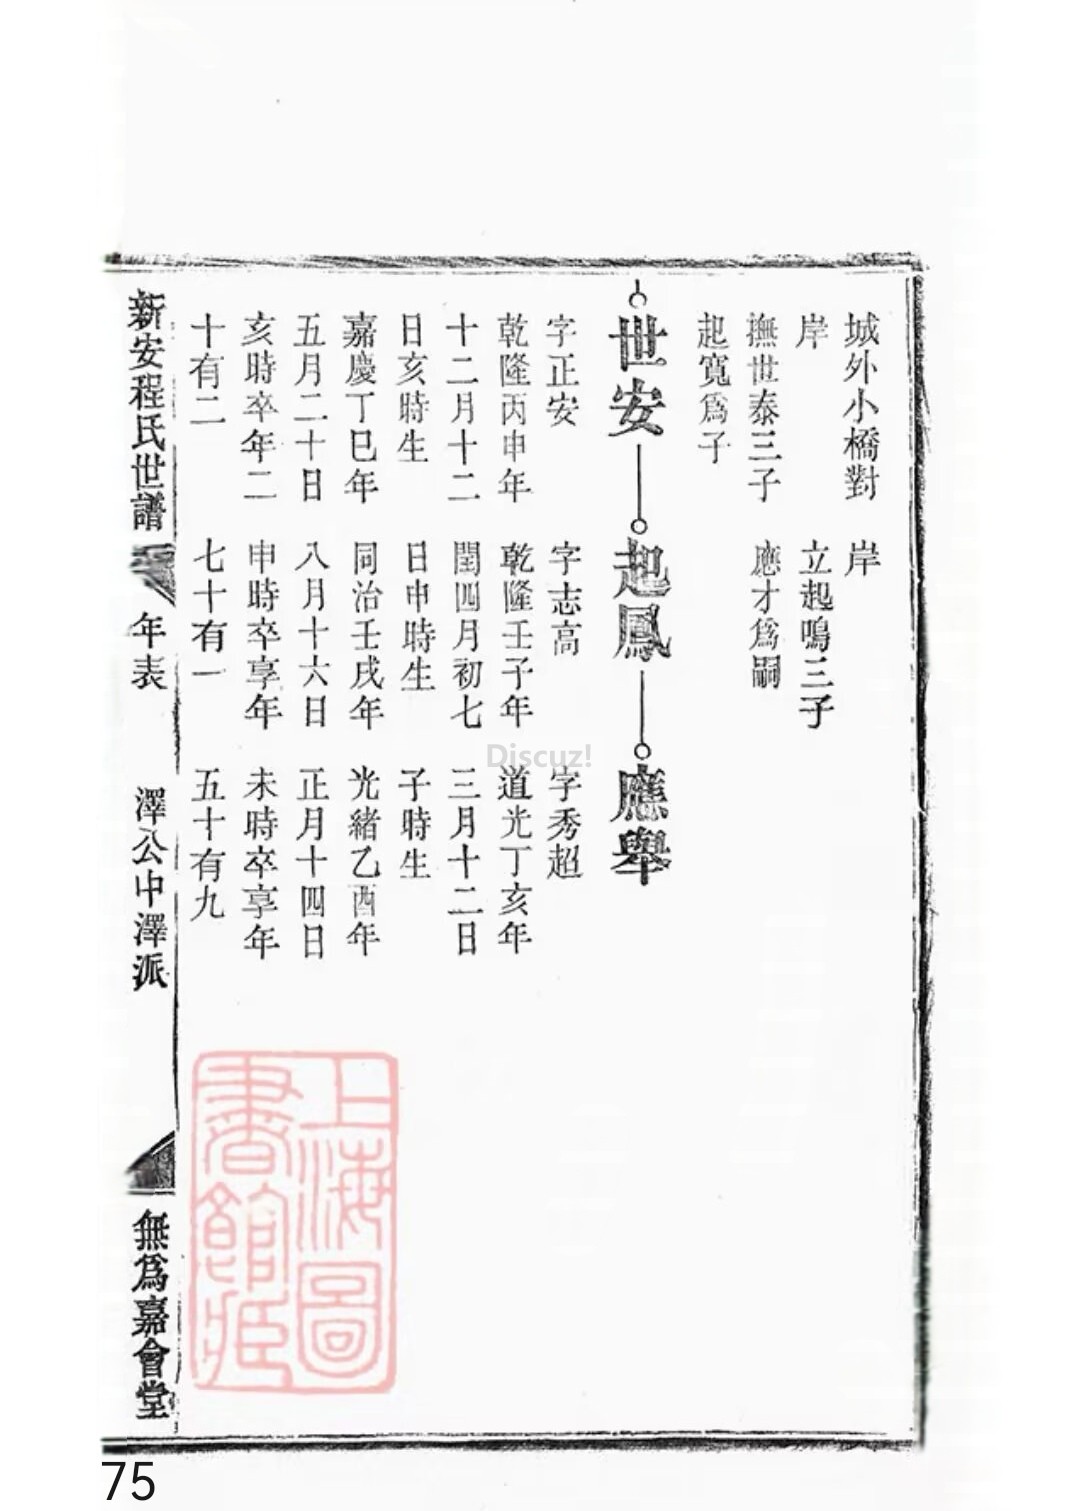 城外小橋對
岸
撫世泰三子
起寬爲子
岸
立起鳴三子
應才爲嗣
世安
字正安
乾隆丙申年
十二月十二
日亥時生
嘉慶丁巳年
五月二十日
亥時卒年二
十有二
起鳳
字志高
乾隆壬子年
閏四月初七
日申時生
同治壬戌年
八月十六日
申時卒享年
七十有一
應舉
字秀超
道光丁亥年
三月十二日
子時生
光緒乙酉年
正月十四日
未時卒享年
五十有九
新安程氏世譜
年表
澤公中澤派
無爲嘉會堂
上海圖
書館藏
Discuz!
75